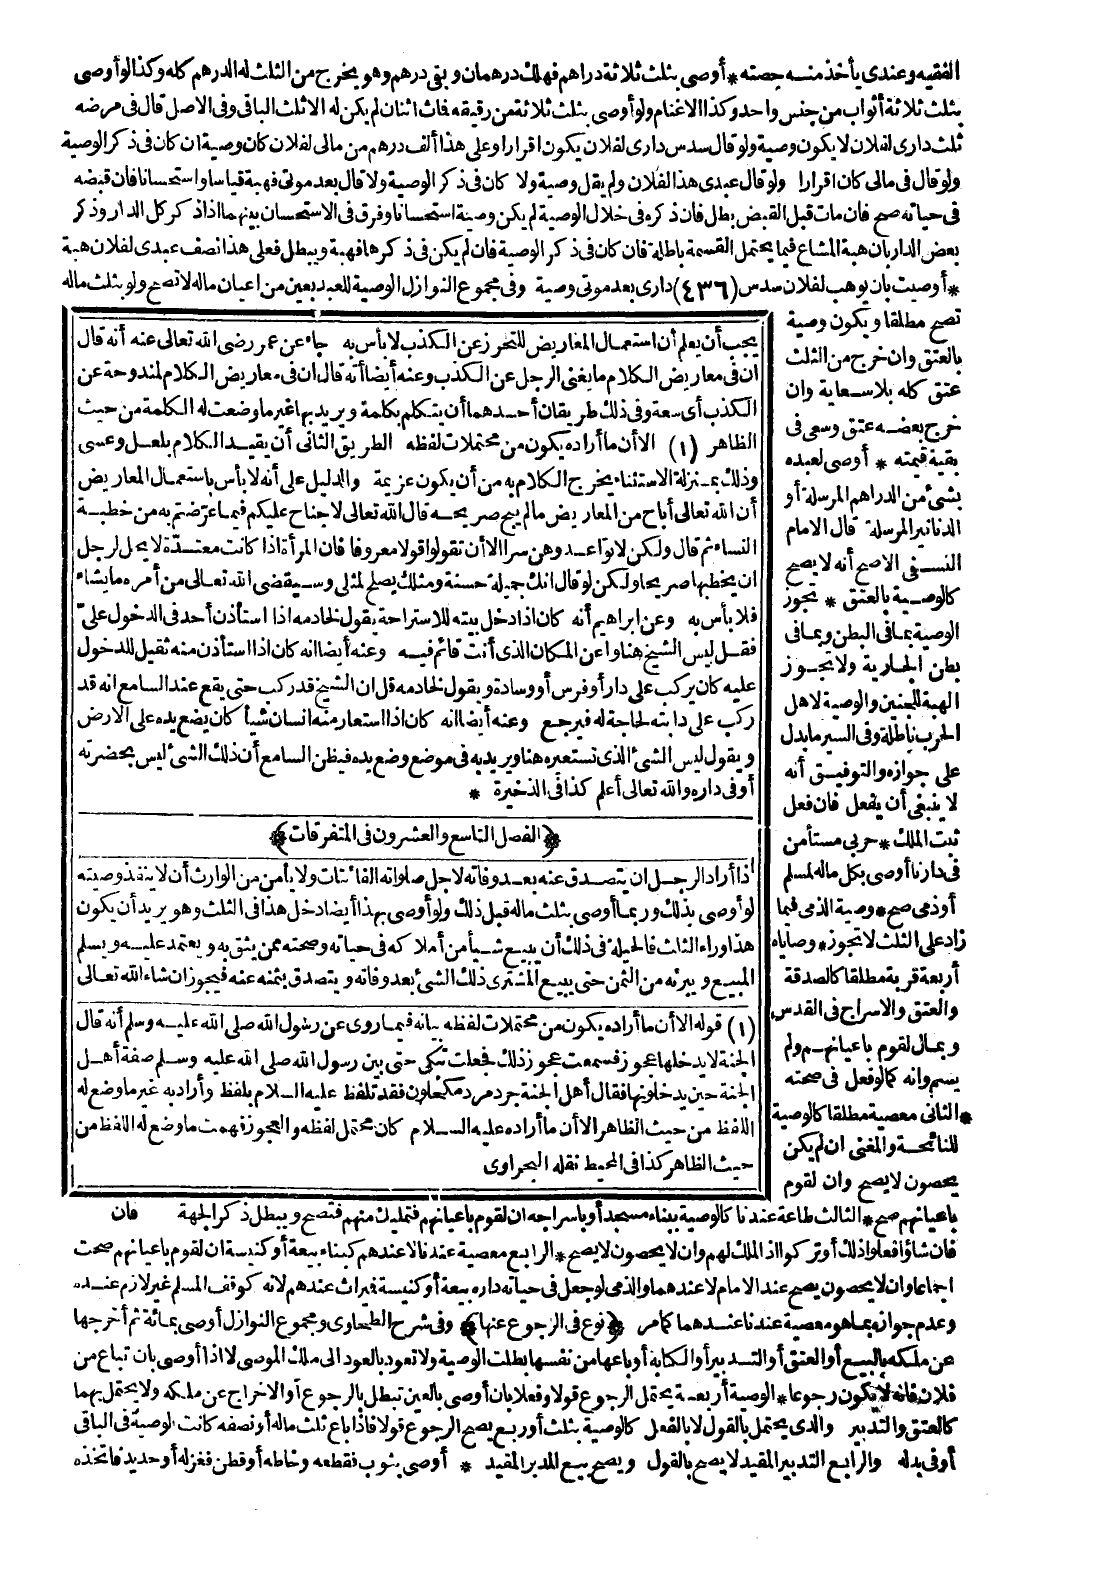 الفقيه وعندى يأخذ منه حصته * أوصى بثلث ثلاثة دراهم فهلك درهمان وبقى درهم وهو يخرج من الثلث له الدرهم كله وكذا لو أوصى
بثلث ثلاثة أثواب من جنس واحد وكذا الاغنام ولو أوصى بثلث ثلاثة من رقيقه فمات اثنان لم يكن له الا ثلث الباقى وفى الاصل قال فى مرضه
ثلث دارى لفلان لا يكون وصية ولو قال سدس دارى لفلان يكون اقرارا وعلى هذا ألف درهم من مالى لفلان كان وصية ان كان فى ذكر الوصية
ولو قال فى مالى كان اقرارا ولو قال عبدى هذا لفلان ولم يقل وصية ولا كان فى ذكر الوصية ولا قال بعد موتى فهبة قياسا واستحسانا فان قبضه
فى حياته صح فان مات قبل القبض بطل فان ذكره فى خلال الوصية لم يكن وصية استحسانا وفرق فى الاستحسان بينهما اذا ذكر كل الدار وذكر
بعض الدار بان هبة المشاع فيما يحتمل القسمة باطلة فان كان فى ذكر الوصية فان لم يكن فى ذكرها فهبة ويبطل فعلى هذا نصف عبدى لفلان هبة
* أوصيت بان يوهب لفلان سدس (٤٣٦) دارى بعد موتى وصية وفى مجموع النوازل الوصية للعبد بعين من اعيان ماله لا تصح ولو بثلث ماله
تصح مطلقا ويكون وصية
بالعتق وان خرج من الثلث
عتق كله بلا سعاية وان
خرج بعضه عتق وسعى فى
بقية قيمته * أوصى لعبده
بشئ من الدراهم المرسلة أو
الدنانير المرسلة قال الامام
النسفى الاصح أنه لا يصح
كالوصية بالعتق * تجوز
الوصية بما فى البطن وبما فى
بطن الجارية ولا يجوز
الهبة للجنين والوصية لاهل
الحرب باطلة وفى السير ما يدل
على جوازه والتوفيق أنه
لا ينبغى أن يفعل فان فعل
ثبت الملك * حربى مستأمن
فى دارنا أوصى بكل ماله لمسلم
أو ذمى صح * وصية الذمى فيما
زاد على الثلث لا تجوز * وصاياه
أربعة قربة مطلقا كالصدقة
والعتق والاسراج فى القدس
وبمال لقوم باعيانهم ولم
يسم وانه كما لو فعل فى صحته
* الثانى معصية مطلقا كالوصية
للنائحة والمغنى ان لم يكن
يحصون لا يصح وان لقوم
يجب أن يعلم أن استعمال المعاريض للتحرز عن الكذب لا بأس به جاء عن عمر رضى الله تعالى عنه أنه قال
ان فى معاريض الكلام ما يغنى الرجل عن الكذب وعنه أيضا أنه قال ان فى معاريض الكلام لمندوحة عن
الكذب أى سعة وفى ذلك طريقان أحدهما أن يتكلم بكلمة ويريد بها غير ما وضعت له الكلمة من حيث
الظاهر (١) الا أن ما أراده يكون من محتملات لفظه الطريق الثانى أن يقيد الكلام بلعل وعسى
وذلك بمنزلة الاستثناء يخرج الكلام به من أن يكون عزيمة والدليل على أنه لا بأس باستعمال المعاريض
أن الله تعالى أباح من المعاريض ما لم يبح صريحه قال الله تعالى لا جناح عليكم فيما عرضتم به من خطبة
النساء ثم قال ولكن لا تواعدوهن سرا الا أن تقولوا قولا معروفا فان المرأة اذا كانت معتدة لا يحل لرجل
ان يخطبها صريحا ولكن لو قال انك جميلة حسنة ومثلك يصلح لمثلى وسيقضى الله تعالى من أمره ما يشاء
فلا بأس به وعن ابراهيم أنه كان اذا دخل بيته للاستراحة يقول لخادمه اذا استأذن أحد فى الدخول علىّ
فقل ليس الشيخ هنا واعن المكان الذى أنت قائم فيه وعنه أيضا انه كان اذا استأذن منه ثقيل للدخول
عليه كان يركب على دار أو فرس أو وسادة ويقول لخادمه قل ان الشيخ قد ركب حتى يقع عند السامع انه قد
ركب على دابته لحاجة له فيرجع وعنه أيضا انه كان اذا استعار منه انسان شيأ كان يضع يده على الارض
ويقول ليس الشئ الذى تستعيره هنا ويريد به فى موضع وضع يده فيظن السامع أن ذلك الشئ ليس بحضرته
أو فى داره والله تعالى أعلم كذا فى الذخيرة *
﴿الفصل التاسع والعشرون فى المتفرقات﴾
اذا أراد الرجل ان يتصدق عنه بعد وفاته لاجل صلواته الفائتات ولا يأمن من الوارث أن لا ينفذ وصيته
لو أوصى بذلك وربما أوصى بثلث ماله قبل ذلك ولو أوصى بهذا أيضا دخل هذا فى الثلث وهو يريد أن يكون
هذا وراء الثلث فالحيلة فى ذلك أن يبيع شيأ من أملاكه فى حياته وصحته ممن يثق به ويعتمد عليه ويسلم
المبيع ويبرئه من الثمن حتى يبيع المشترى ذلك الشئ بعد وفاته ويتصدق بثمنه عنه فيجوز ان شاء الله تعالى
(١) قوله الا أن ما أراده يكون من محتملات لفظه بيانه فيما روى عن رسول الله صلى الله عليه وسلم أنه قال
الجنة لا يدخلها عجوز فسمعت عجوز ذلك فجعلت تبكى حتى بين رسول الله صلى الله عليه وسلم صفة أهل
الجنة حين يدخلونها فقال أهل الجنة جرد مرد مكحلون فقد تلفظ عليه السلام بلفظ وأراد به غير ما وضع له
اللفظ من حيث الظاهر الا أن ما أراده عليه السلام كان محتمل لفظه والعجوز فهمت ما وضع له اللفظ من
حيث الظاهر كذا فى المحيط نقله البحراوى
باعيانهم صح * الثالث طاعة عندنا كالوصية ببناء مسجد أو باسراجه ان لقوم باعيانهم فتمليك منهم فتصح ويبطل ذكر الجهة فان
فان شاؤا فعلوا ذلك أو تركوا اذ الملك لهم وان لا يحصون لا يصح * الرابع معصية عندنا لا عندهم كبناء بيعة أو كنيسة ان لقوم باعيانهم صحت
اجماعا وان لا يحصون يصح عند الامام لا عندهما والذمى لو جعل فى حياته داره بيعة أو كنيسة فيراث عندهم لانه كوقف المسلم غير لازم عنده
وعدم جوازه بما هو معصية عندنا عندهما كما مر ﴿نوع فى الرجوع عنها﴾ وفى شرح الطحاوى ومجموع النوازل أوصى بمائة ثم أخرجها
عن ملكه بالبيع أو العتق أو التدبير أو الكتابة أو باعها من نفسها بطلت الوصية ولا تعود بالعود الى ملك الموصى لا اذا أوصى بان تباع من
فلان فانه لا يكون رجوعا * الوصية أربعة يحتمل الرجوع قولا وفعلا بان أوصى بالعين تبطل بالرجوع أو الاخراج عن ملكه ولا يحتمل بهما
كالعتق والتدبير والذى يحتمل بالقول لا بالفعل كالوصية بثلث أو ربع يصح الرجوع قولا فاذا باع ثلث ماله أو نصفه كانت الوصية فى الباقى
أو فى بدله والرابع التدبير المقيد لا يصح بالقول ويصح ببيع المدبر المقيد * أوصى بثوب فقطعه وخاطه أو قطن فغزله أو حديد فاتخذه